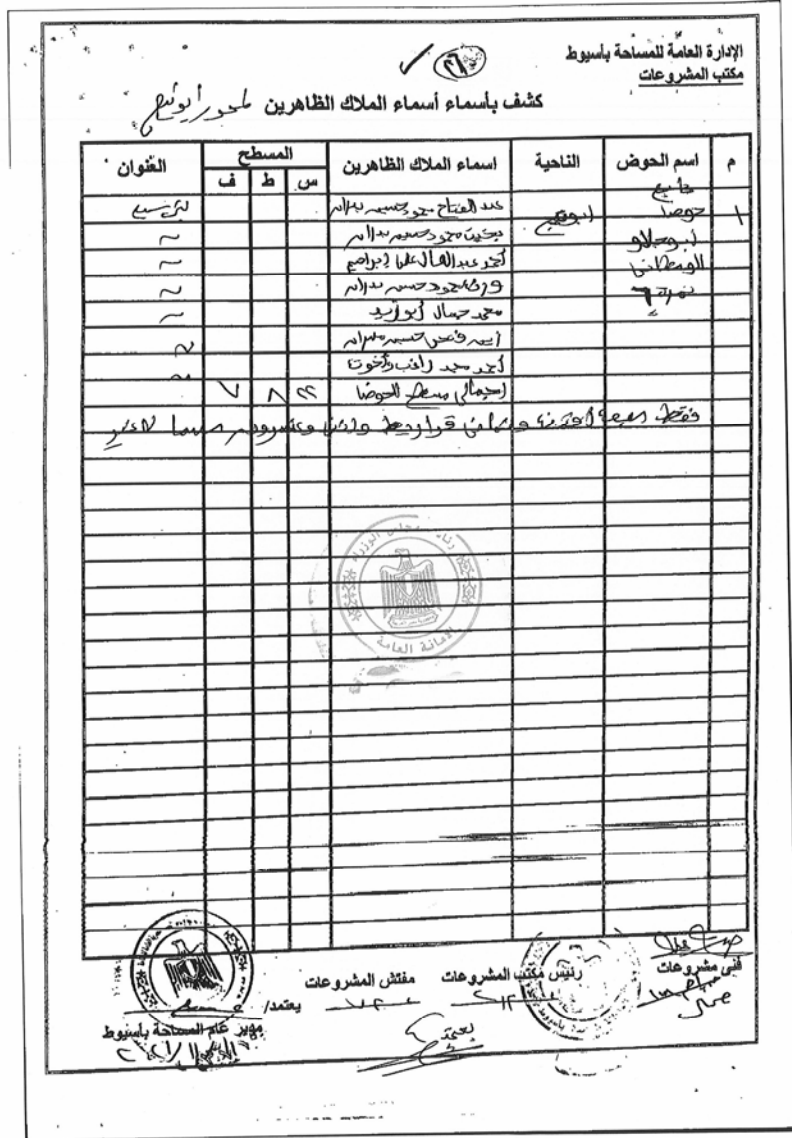 الإدارة العامة للمساحة بأسيوط
مكتب المشروعات
٢٦
كشف بأسماء أسماء الملاك الظاهرين لمحور أبوتيج
م اسم الحوض الناحية اسماء الملاك الظاهرين المسطح العنوان
س ط ف
تابع
١ حوض ابوتيج عبد الفتاح محمود حسين بدران
بخيت محمود حسين بدران
الوسطاني أحمد عبد العال علي إبراهيم
نمرة ٦ محمود حسين بدران
محمد جمال أبوزيد
فتحى حسين
أحمد محمد راغب وأخوته
اجمالى مسطح الحوض ٢٢ ٨ ٧
فقط سبعة أفدنة وثمانى قراريط واثنان وعشرون سهما لاغير
رئاسة مجلس الوزراء
الامانة العامة
فنى مشروعات
رئيس مكتب المشروعات
مفتش المشروعات
يعتمد/
مدير عام المساحة بأسيوط
يعتمد